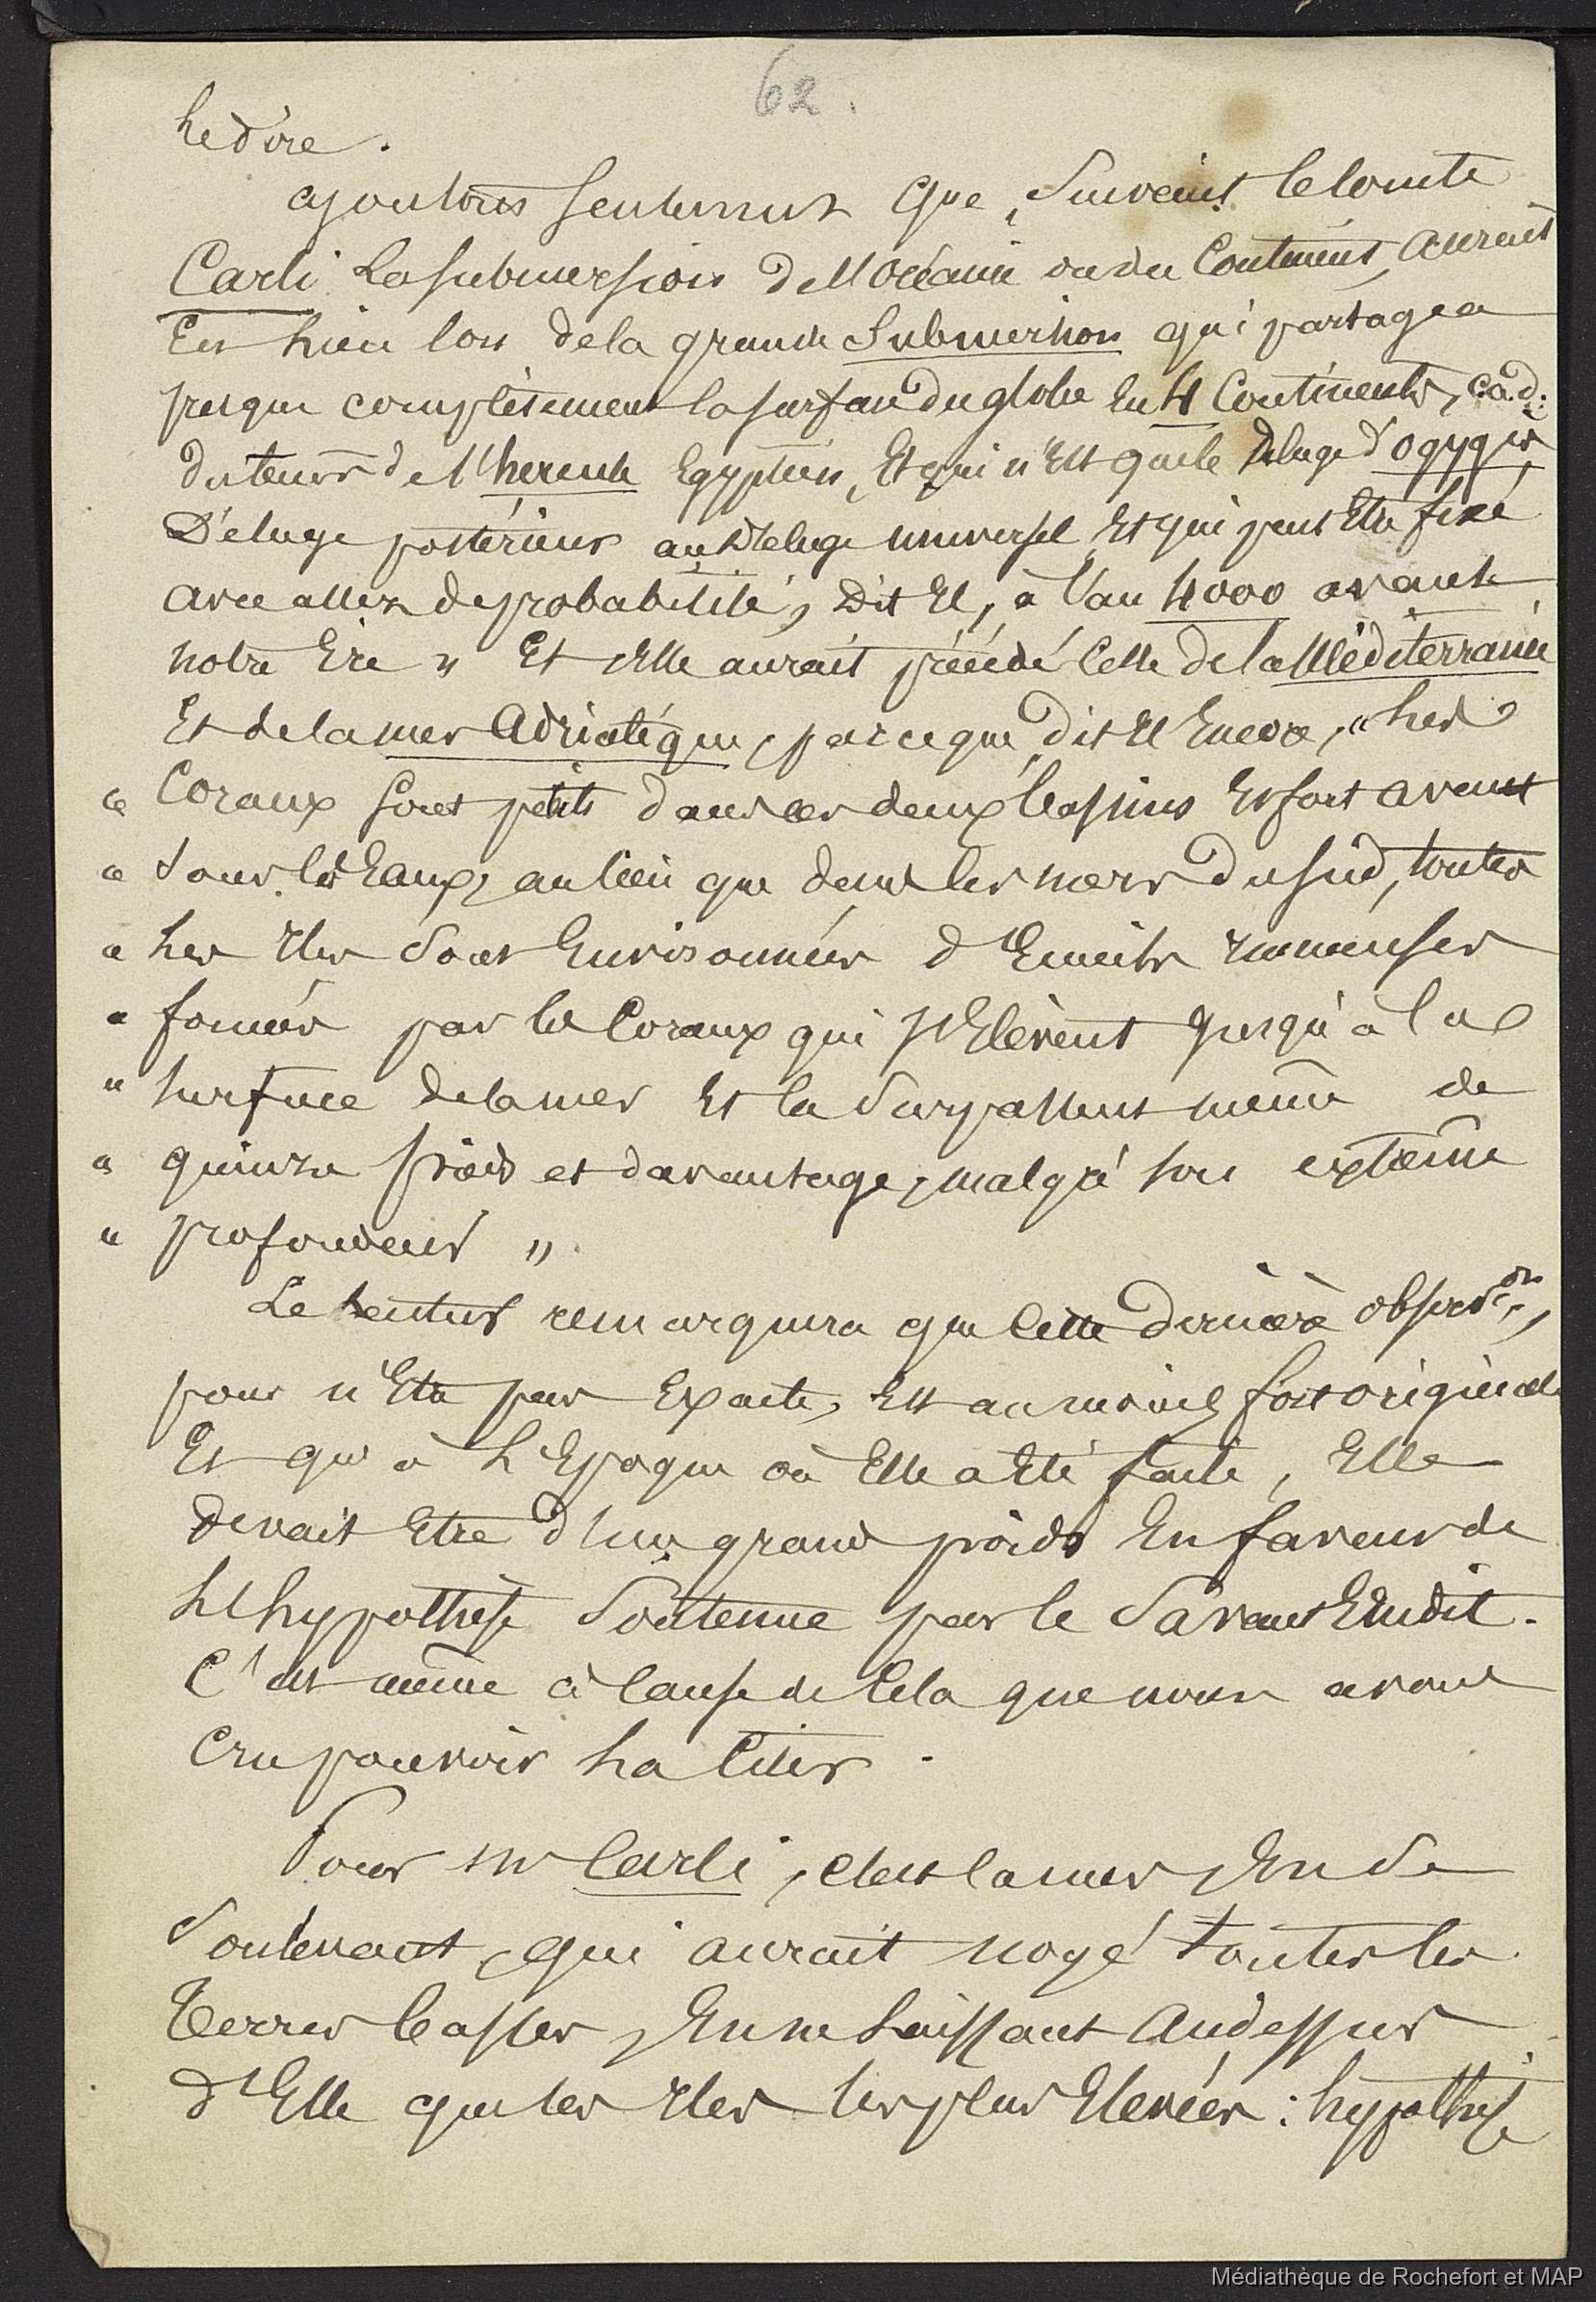 62.
le dire.
ajoutons seulement que, suivant le Comte
Carli la submersion de l'Océanie ou du Continent, aurait
Eu lieu lors de la grande Submersion qui partagea
presque complètement la surface du globe En 4 Continents, c.à.d.
du tems de l'hercule Egyptien, Et qui n'Est que le deluge d'ogygès,
Déluge postérieur au Déluge universel, Et qui peut Etre fixé
avec assez de probabilité, Dit El, à l'an 4000 avant
notre Ere " Et Elle aurait précédé Celle de la Méditerranée
Et de la mer Adriatique, parceque, dit El Encore, " les
" Coraux sont petits dans ces deux bassins Et fort avant
" sous les Eaux, au lieu que dans les mers du sud, toutes
" les Iles sont Environnées d'Ecueils immenses
" formés par les Coraux qui s'Elèvent jusqu'à la
" surface de la mer Et la surpassent même de
" quinze pieds et davantage, malgré son extrême
" profondeur ".
Le lecteur remarquera que cette dernière observon,
pour n'Etre pas Exacte, Est au moins fort originale
Et qu'à l'Epoque où Elle a Eté faite, Elle
devait Etre d'un grand poids En faveur de
l'hypothèse soutenue par le savant Erudit.
C'est même à cause de Cela que nous avons
Cru pouvoir la Citer.
Pour mr Carli, c'est la mer En se
soulevant, qui aurait noyé toutes les
terres basses, En ne laissant au dessus
d'Elle que les Iles les plus Elevées : hypothèse
Médiathèque de Rochefort et MAP